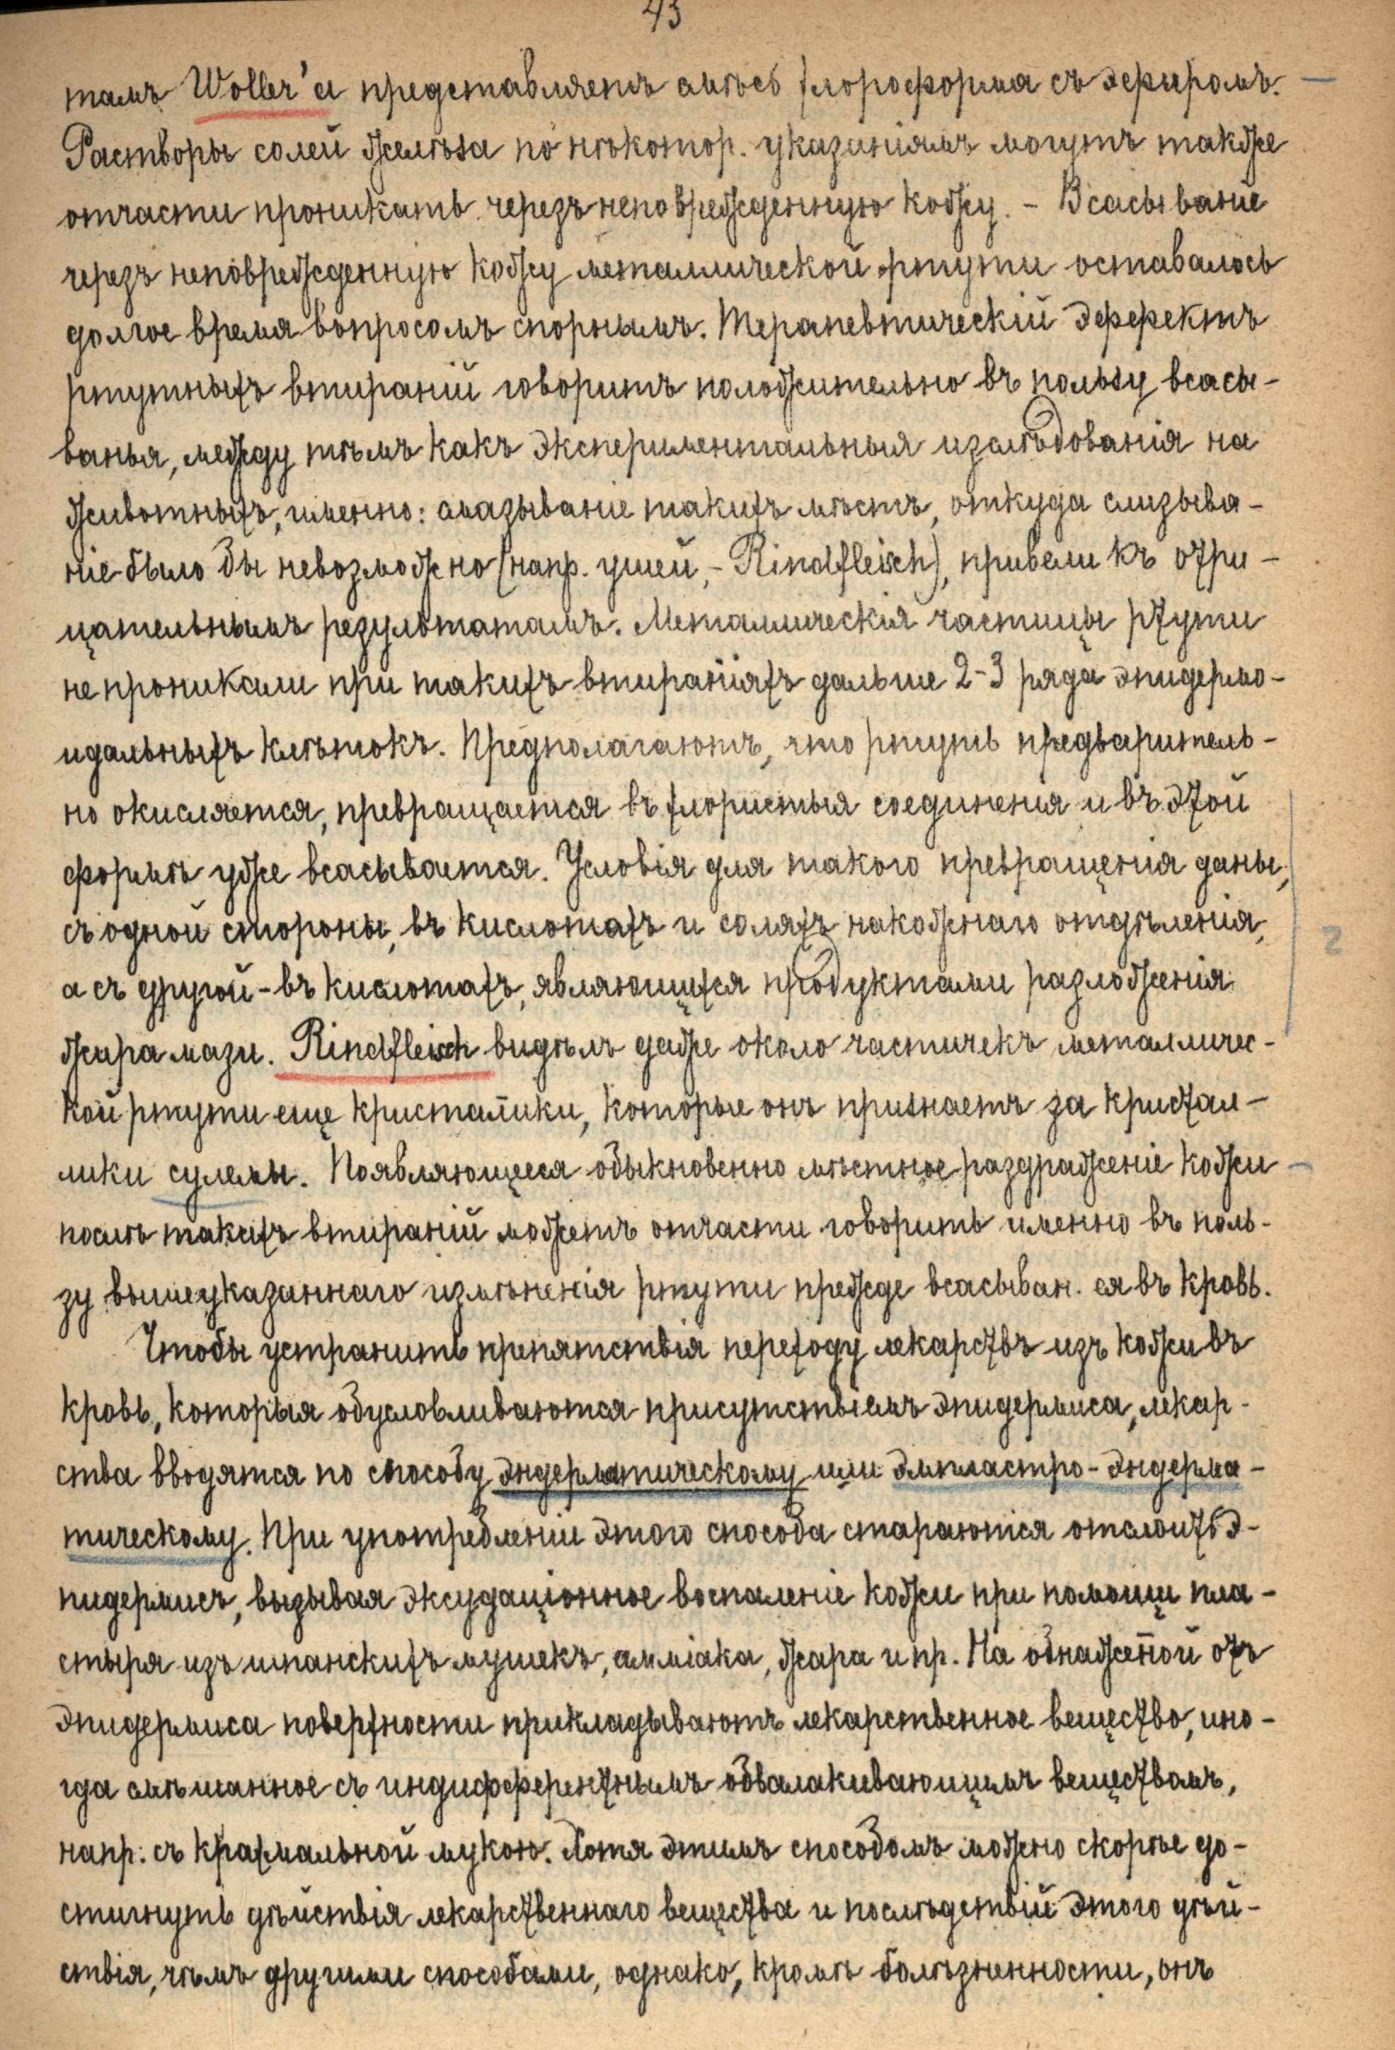 43
тамъ Woller'а представляетъ смѣсь хлороформа съ эфиромъ.
Растворы солей желѣза по нѣкотор. указаніямъ могутъ также
отчасти проникать черезъ неповрежденную кожу. - Всасываніе
черезъ неповрежденную кожу металлической ртути оставалось
долгое время вопросомъ спорнымъ. Терапевтическій эффектъ
ртутныхъ втираній говоритъ положительно въ пользу всасы-
ванья, между тѣмъ какъ экспериментальныя изслѣдованія на
животныхъ, именно: смазываніе такихъ мѣстъ, откуда слизыва-
ніе было бы невозможно (напр. ушей, - Rindfleisch), привели къ отри-
цательнымъ результатамъ. Металлическія частицы ртути
не проникали при такихъ втираніяхъ дальше 2-3 ряда эпидермо-
идальныхъ клѣтокъ. Предполагаютъ, что ртуть предваритель-
но окисляется, превращается въ хлористыя соединенія и въ этой
формѣ уже всасывается. Условія для такого превращенія даны,
съ одной стороны, въ кислотахъ и соляхъ накожнаго отдѣленія,
а съ другой - въ кислотахъ, являющихся продуктами разложенія
жира мази. Rindfleisch видѣлъ даже около частичекъ металличес-
кой ртути еще кристалики, которые онъ признаетъ за кристал-
лики сулемы. Появляющееся обыкновенно мѣстное раздраженіе кожи
послѣ такихъ втираній можетъ отчасти говорить именно въ поль-
зу вышеуказаннаго измѣненія ртути прежде всасыван. ея въ кровь.
Чтобы устранить препятствія переходу лекарствъ изъ кожи въ
кровь, которыя обусловливаются присутствіемъ эпидермиса, лекар-
ства вводятся по способу эндерматическому или эмпластро-эндерма-
тическому. При употребленіи этого способа стараются отслоить э-
пидермисъ, вызывая эксудаціонное воспаленіе кожи при помощи пла-
стыря изъ шпанскихъ мушекъ, амміака, жара и пр. На обнаженой отъ
эпидермиса поверхности прикладываютъ лекарственное вещество, ино-
гда смѣшанное съ индифферентнымъ обвалакивающимъ веществомъ,
напр. съ крахмальной мукою. Хотя этимъ способомъ можно скорѣе до-
стигнуть дѣйствія лекарственнаго вещества и послѣдствій этого дѣй-
ствія, чѣмъ другими способами, однако, кромѣ болѣзненности, онъ
2